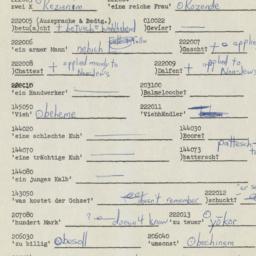 222003 zwei X Kezunem 'eine reiche Frau' Okozende
222005 (Aussprache & Bedtg.) 010022
)betu(a)ht + betucht= wohlhabend )Gevier!
222006 222007
'ein armer Mann' nebich )Gascht? + applied
222008 222009
)Chattes? + applied mainly to Nondews )Dalfen? + applied to Nondews
'ein Handwerker' 203100 )Balmeloche?
145050 222011
'Vieh' Obeheme 'Viehhändler'
144020 144030
'eine schlechte Kuh' )Boore?
144070 144073
'eine trächtige Kuh' )battersch?
144080
'ein junges Kalb'
143050 222012
'was kostet der Ochse?' don't remember )schuckt?
207080 222013
'hundert Mark' ? doesn't know 'zu teuer' Oyoker
206030 206040
'zu billig' Obesoll 'umsonst' Obechinem